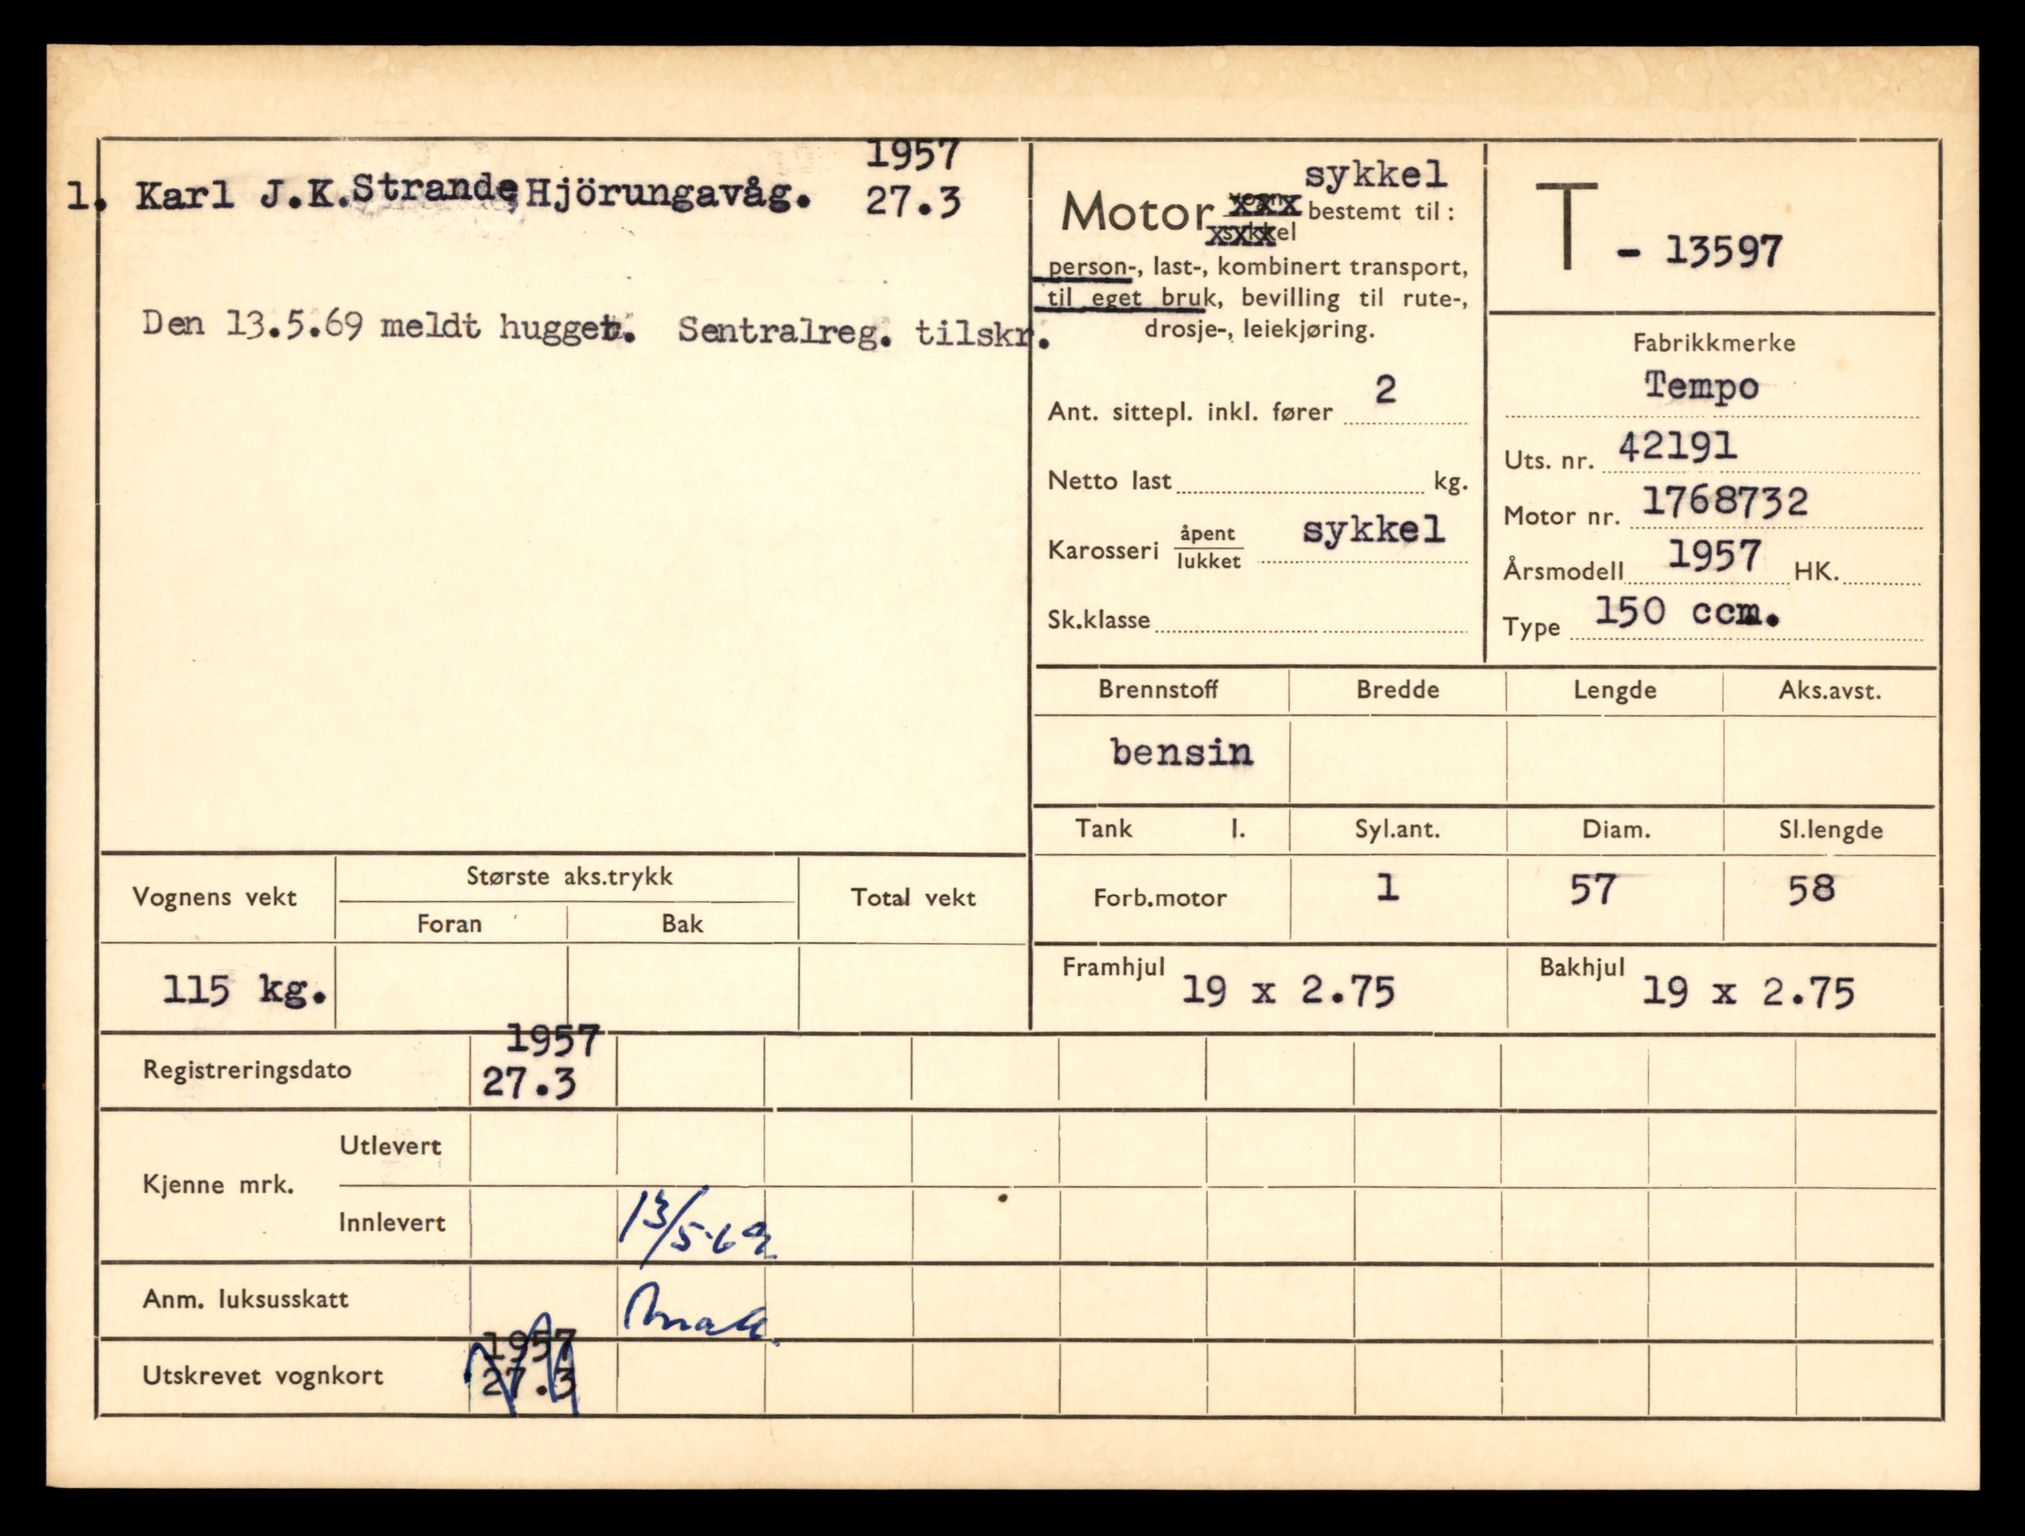 1957
1. Karl J.K.Strande, Hjörungavåg. 27.3
Den 13.5.69 meldt hugget. Sentralreg. tilskr.
sykkel
Motor vogn sykkel bestemt til:
person-, last-, kombinert transport,
til eget bruk, bevilling til rute-,
drosje-, leiekjøring.
Ant. sittepl. inkl. fører 2
Netto last kg.
Karosseri åpent/lukket sykkel
Sk.klasse
T - 13597
Fabrikkmerke
Tempo
Uts. nr. 42191
Motor nr. 1768732
Årsmodell 1957 HK.
Type 150 ccm.
Brennstoff Bredde Lengde Aks.avst.
bensin
Tank l. Syl.ant. Diam. Sl.lengde
Forb.motor 1 57 58
Framhjul 19 x 2.75 Bakhjul 19 x 2.75
Vognens vekt Største aks.trykk Total vekt
Foran Bak
115 kg.
1957
Registreringsdato 27.3
Kjenne mrk. Utlevert
Innlevert 13/5-69
Anm. luksusskatt
1957
Utskrevet vognkort 27.3